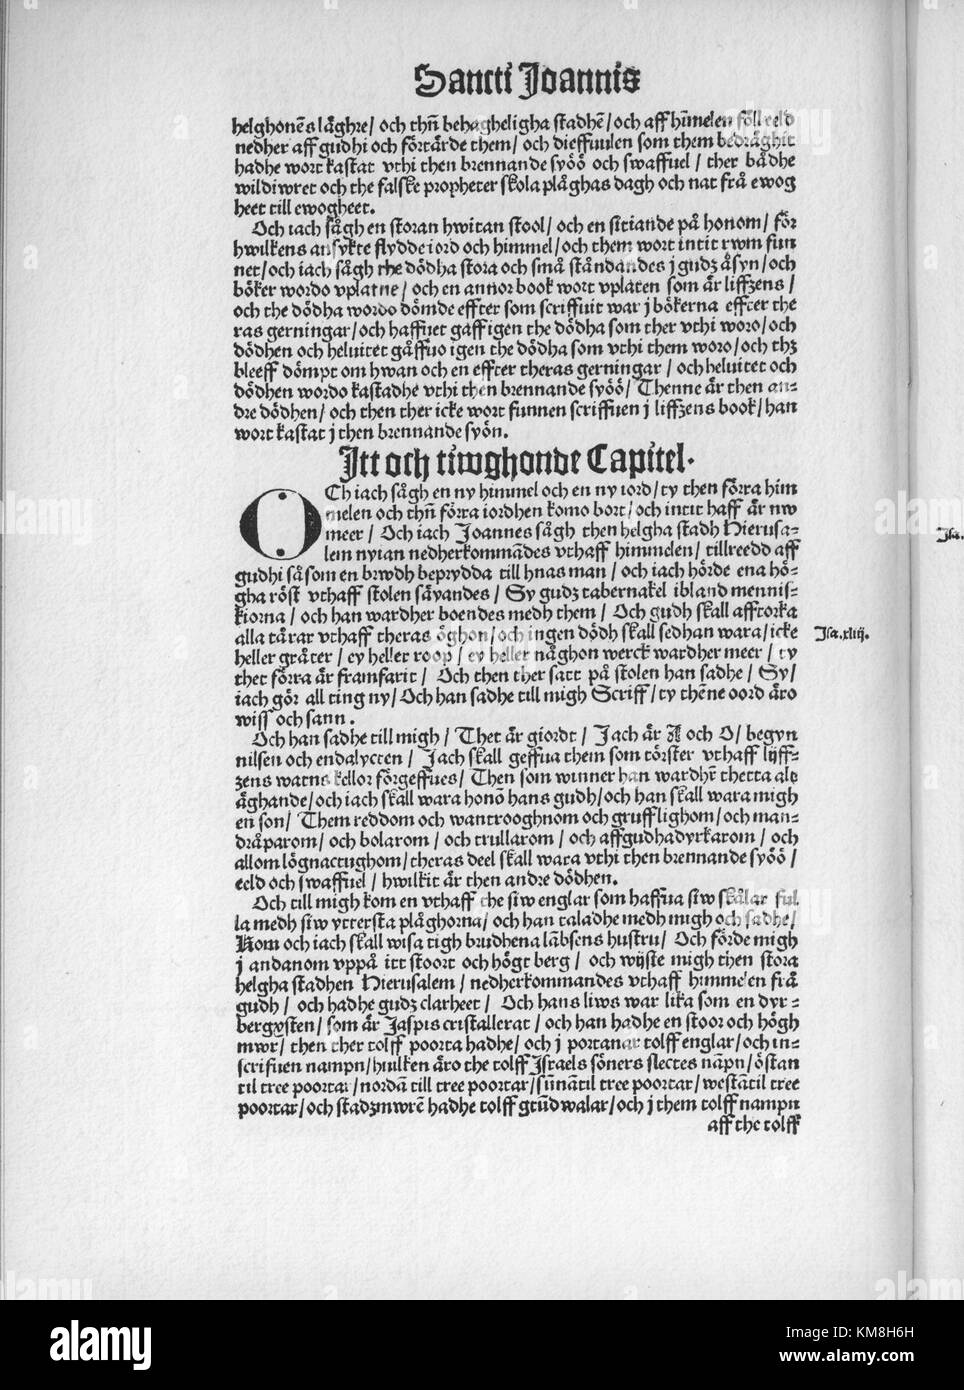 Sancti Joannis
helghonēs läghre/ och thn̄ behagheligha stadhē/ och aff hīmelen föll eeld
nedher aff gudhi och förtärde them/ och dieffuulen som them bedräghit
hadhe wort kastat vthi then brennande syöö och swaffuel/ ther bådhe
wildiwret och the falske propheter skola plåghas dagh och nat frå ewog
heet till ewogheet.
Och iach sågh en storan hwitan stool/ och en sittiande på honom/ för
hwilkens ansykte flydde iord och himmel/ och them wort intit rwm fun
net/ och iach sågh the dödha stora och små ståndandes j gudz åsyn/ och
böker wordo vplatne/ och en annor book wort vplaten som är liffzens/
och the dödha wordo dömde effter som scriffuit war j bökerna effter the
ras gerningar/ och haffuet gaff igen the dödha som ther vthi woro/ och
dödhen och heluitet gåffuo igen the dödha som vthi them woro/ och thz
bleeff dömpt om hwan och en effter theras gerningar/ och heluitet och
dödhen wordo kastadhe vthi then brennande syöö/ Thenne är then an-
dre dödhen/ och then ther icke wort funnen scriffuen j liffzens book/ han
wort kastat j then brennande syön.
Itt och tiwghonde Capitel.
OCh iach sågh en ny himmel och en ny iord/ ty then förra him
melen och thn̄ förra iordhen komo bort/ och intit haff är nw
meer/ Och iach Joannes sågh then helgha stadh Hierusa-
lem nyian nedherkommādes vthaff himmelen/ tillreedd aff
gudhi såsom en brwdh beprydda till hnas man/ och iach hörde ena hö-
gha röst vthaff stolen säyandes/ Sy gudz tabernakel ibland mennis-
kiorna/ och han wardher boendes medh them/ Och gudh skall afftorka
alla tårar vthaff theras öghon/ och ingen dödh skall sedhan wara/ icke
heller gråter/ ey heller roop/ ey heller någhon werck wardher meer/ ty
thet förra är framfarit/ Och then ther satt på stolen han sadhe/ Sy/
iach gör all ting ny/ Och han sadhe till migh Scriff/ ty thēne oord äro
wiss och sann.
Och han sadhe till migh/ Thet är giordt/ Jach är A och O/ begyn
nilsen och endalycten/ Jach skall geffua them som törster vthaff lijff-
zens watns kellor förgeffues/ Then som winner han wardhr̄ thetta alt
äghande/ och iach skall wara honō hans gudh/ och han skall wara migh
en son/ Them reddom och wantrooghnom och grufflighom/ och man-
dråparom/ och bolarom/ och trullarom/ och affgudhadyrkarom/ och
allom lögnacttughom/ theras deel skall wara vthi then brennande syöö/
eeld och swaffuel/ hwilkit är then andre dödhen.
Och till migh kom en vthaff the siw englar som haffua siw skålar ful
la medh siw yttersta plåghorna/ och han taladhe medh migh och sadhe/
Kom och iach skall wisa tigh brudhena lābsens hustru/ Och förde migh
j andanom vppå itt stoort och högt berg/ och wijste migh then stora
helgha stadhen Hierusalem/ nedherkommandes vthaff himmelen frå
gudh/ och hadhe gudz clarheet/ Och hans liws war lika som en dyr-
bergxsten/ som är Jaspis cristallerat/ och han hadhe en stoor och högh
mwr/ then ther tolff poorta hadhe/ och j portanar tolff englar/ och in-
scrifuen nampn/ huilken äro the tolff Israels söners slectes nāpn/ östan
til tree poortar/ nordā till tree poortar/ sūnātil tree poortar/ westātil tree
poortar/ och stadzmwrē hadhe tolff grūdwalar/ och j them tolff nampn
aff the tolff
Jsa.xliij.
Jsa.
alamy
KM8H6H
www.alamy.com